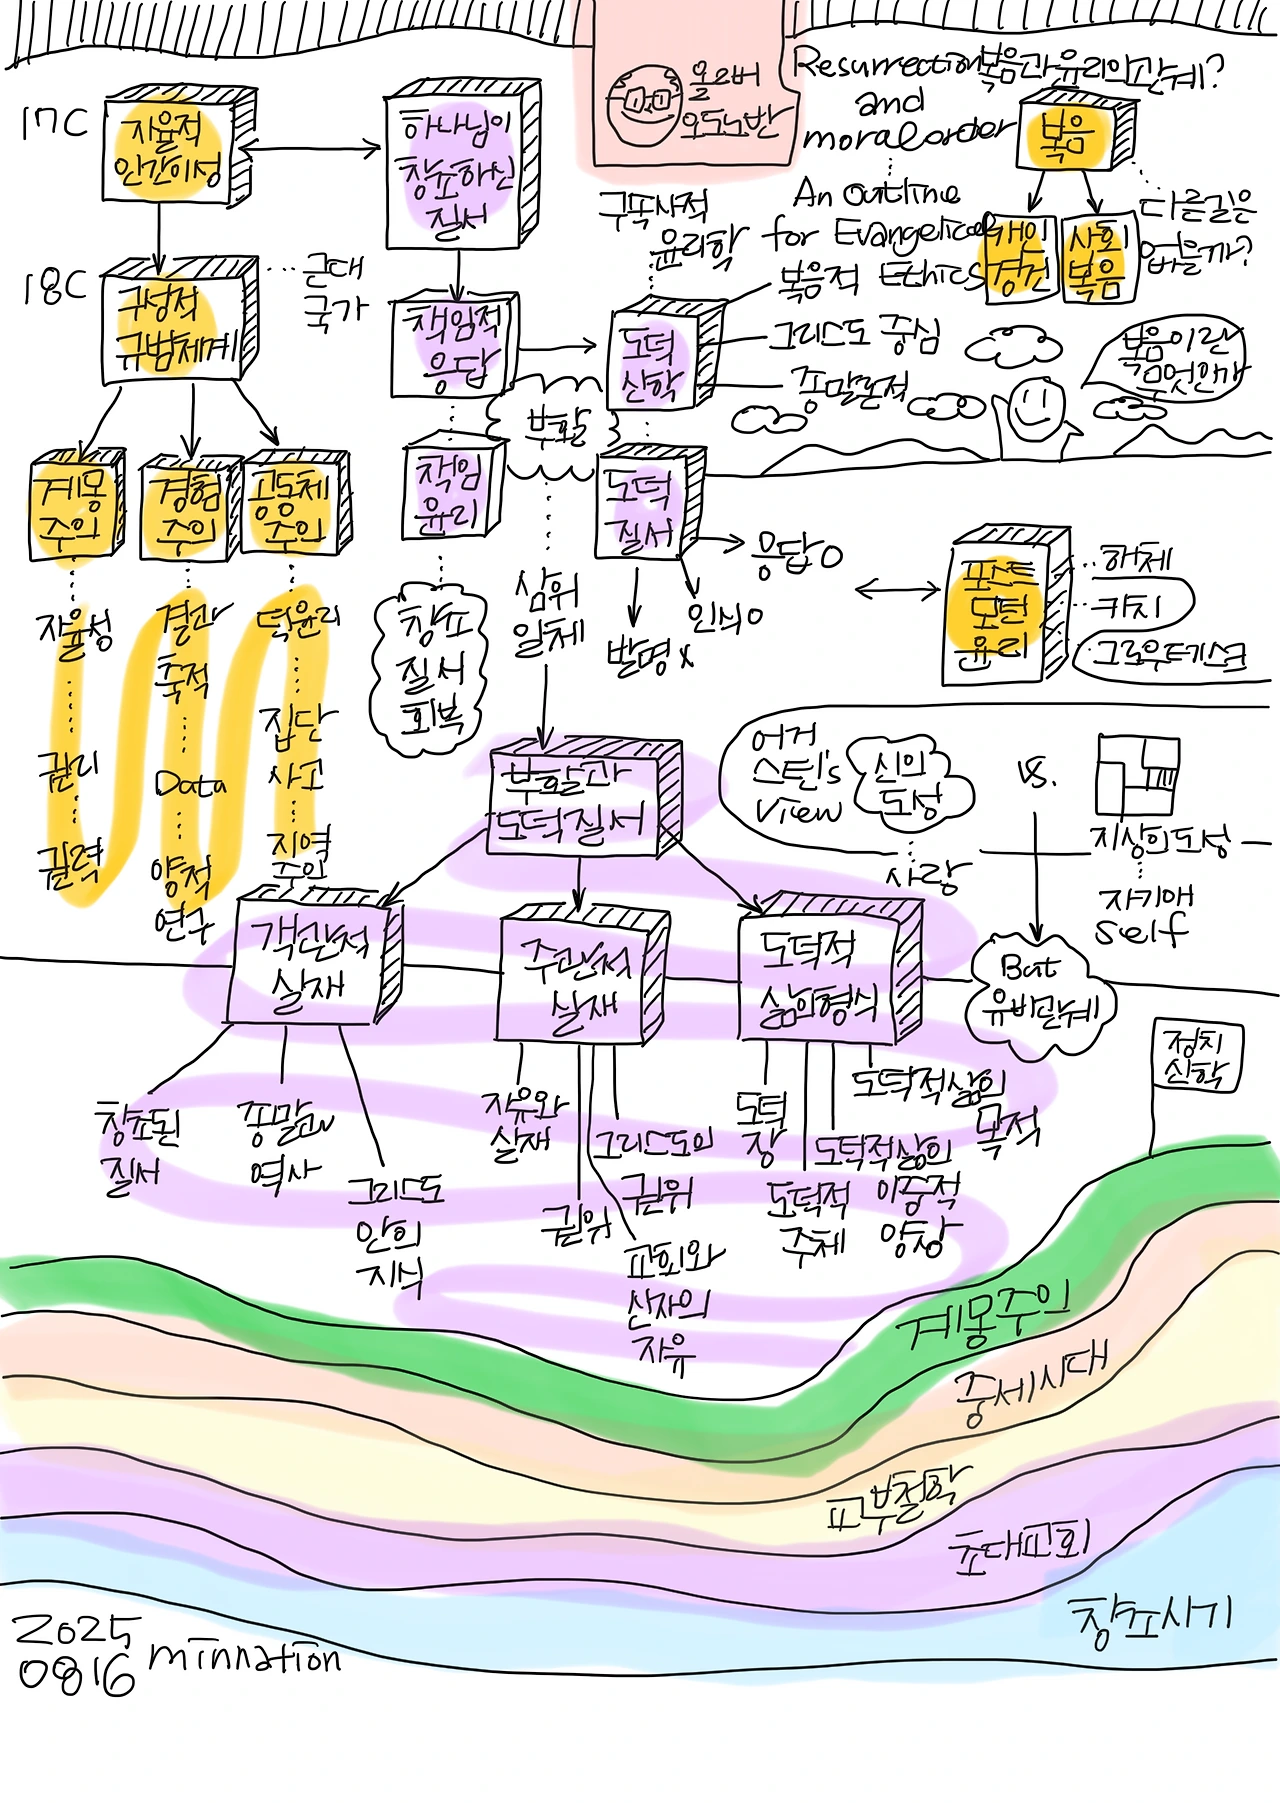 17C
자율적
인간이성
18C
구성적
규범체계
근대
국가
계몽
주의
경험
주의
공동체
주의
자율성
권리
권력
결과
축적
Data
양적
연구
덕윤리
집단
사고
지역
주의
하나님이
창조하신
질서
책임적
응답
책임
윤리
창조
질서
회복
부활
삼위
일체
올리버
오도노반
구속사적
윤리학
도덕
신학
도덕
질서
응답o
인식o
발명x
Resurrection
and
moral order
An outline
for Evangelical
복음적 Ethics
그리스도 중심
종말론적
복음과 윤리의 관계?
복음
개인
경건
사회
복음
다른길은
없을까?
복음이란
무엇인가
포스트
모던
윤리
해체
키치
그로우테스크
어거
스틴's
View
신의
도성
사랑
vs.
지상의도성
자기애
self
But
유비관계
정치
신학
부활과
도덕질서
객관적
실재
주관적
실재
도덕적
삶의형식
창조된
질서
종말과
역사
그리스도
안의
지식
자유와
실재
권위
그리스도의
권위
교회와
신자의
자유
도덕
장
도덕적
주체
도덕적삶의
이중적
양상
도덕적삶의
목적
계몽주의
중세시대
교부철학
초대교회
창조시기
2025
0816
minnation